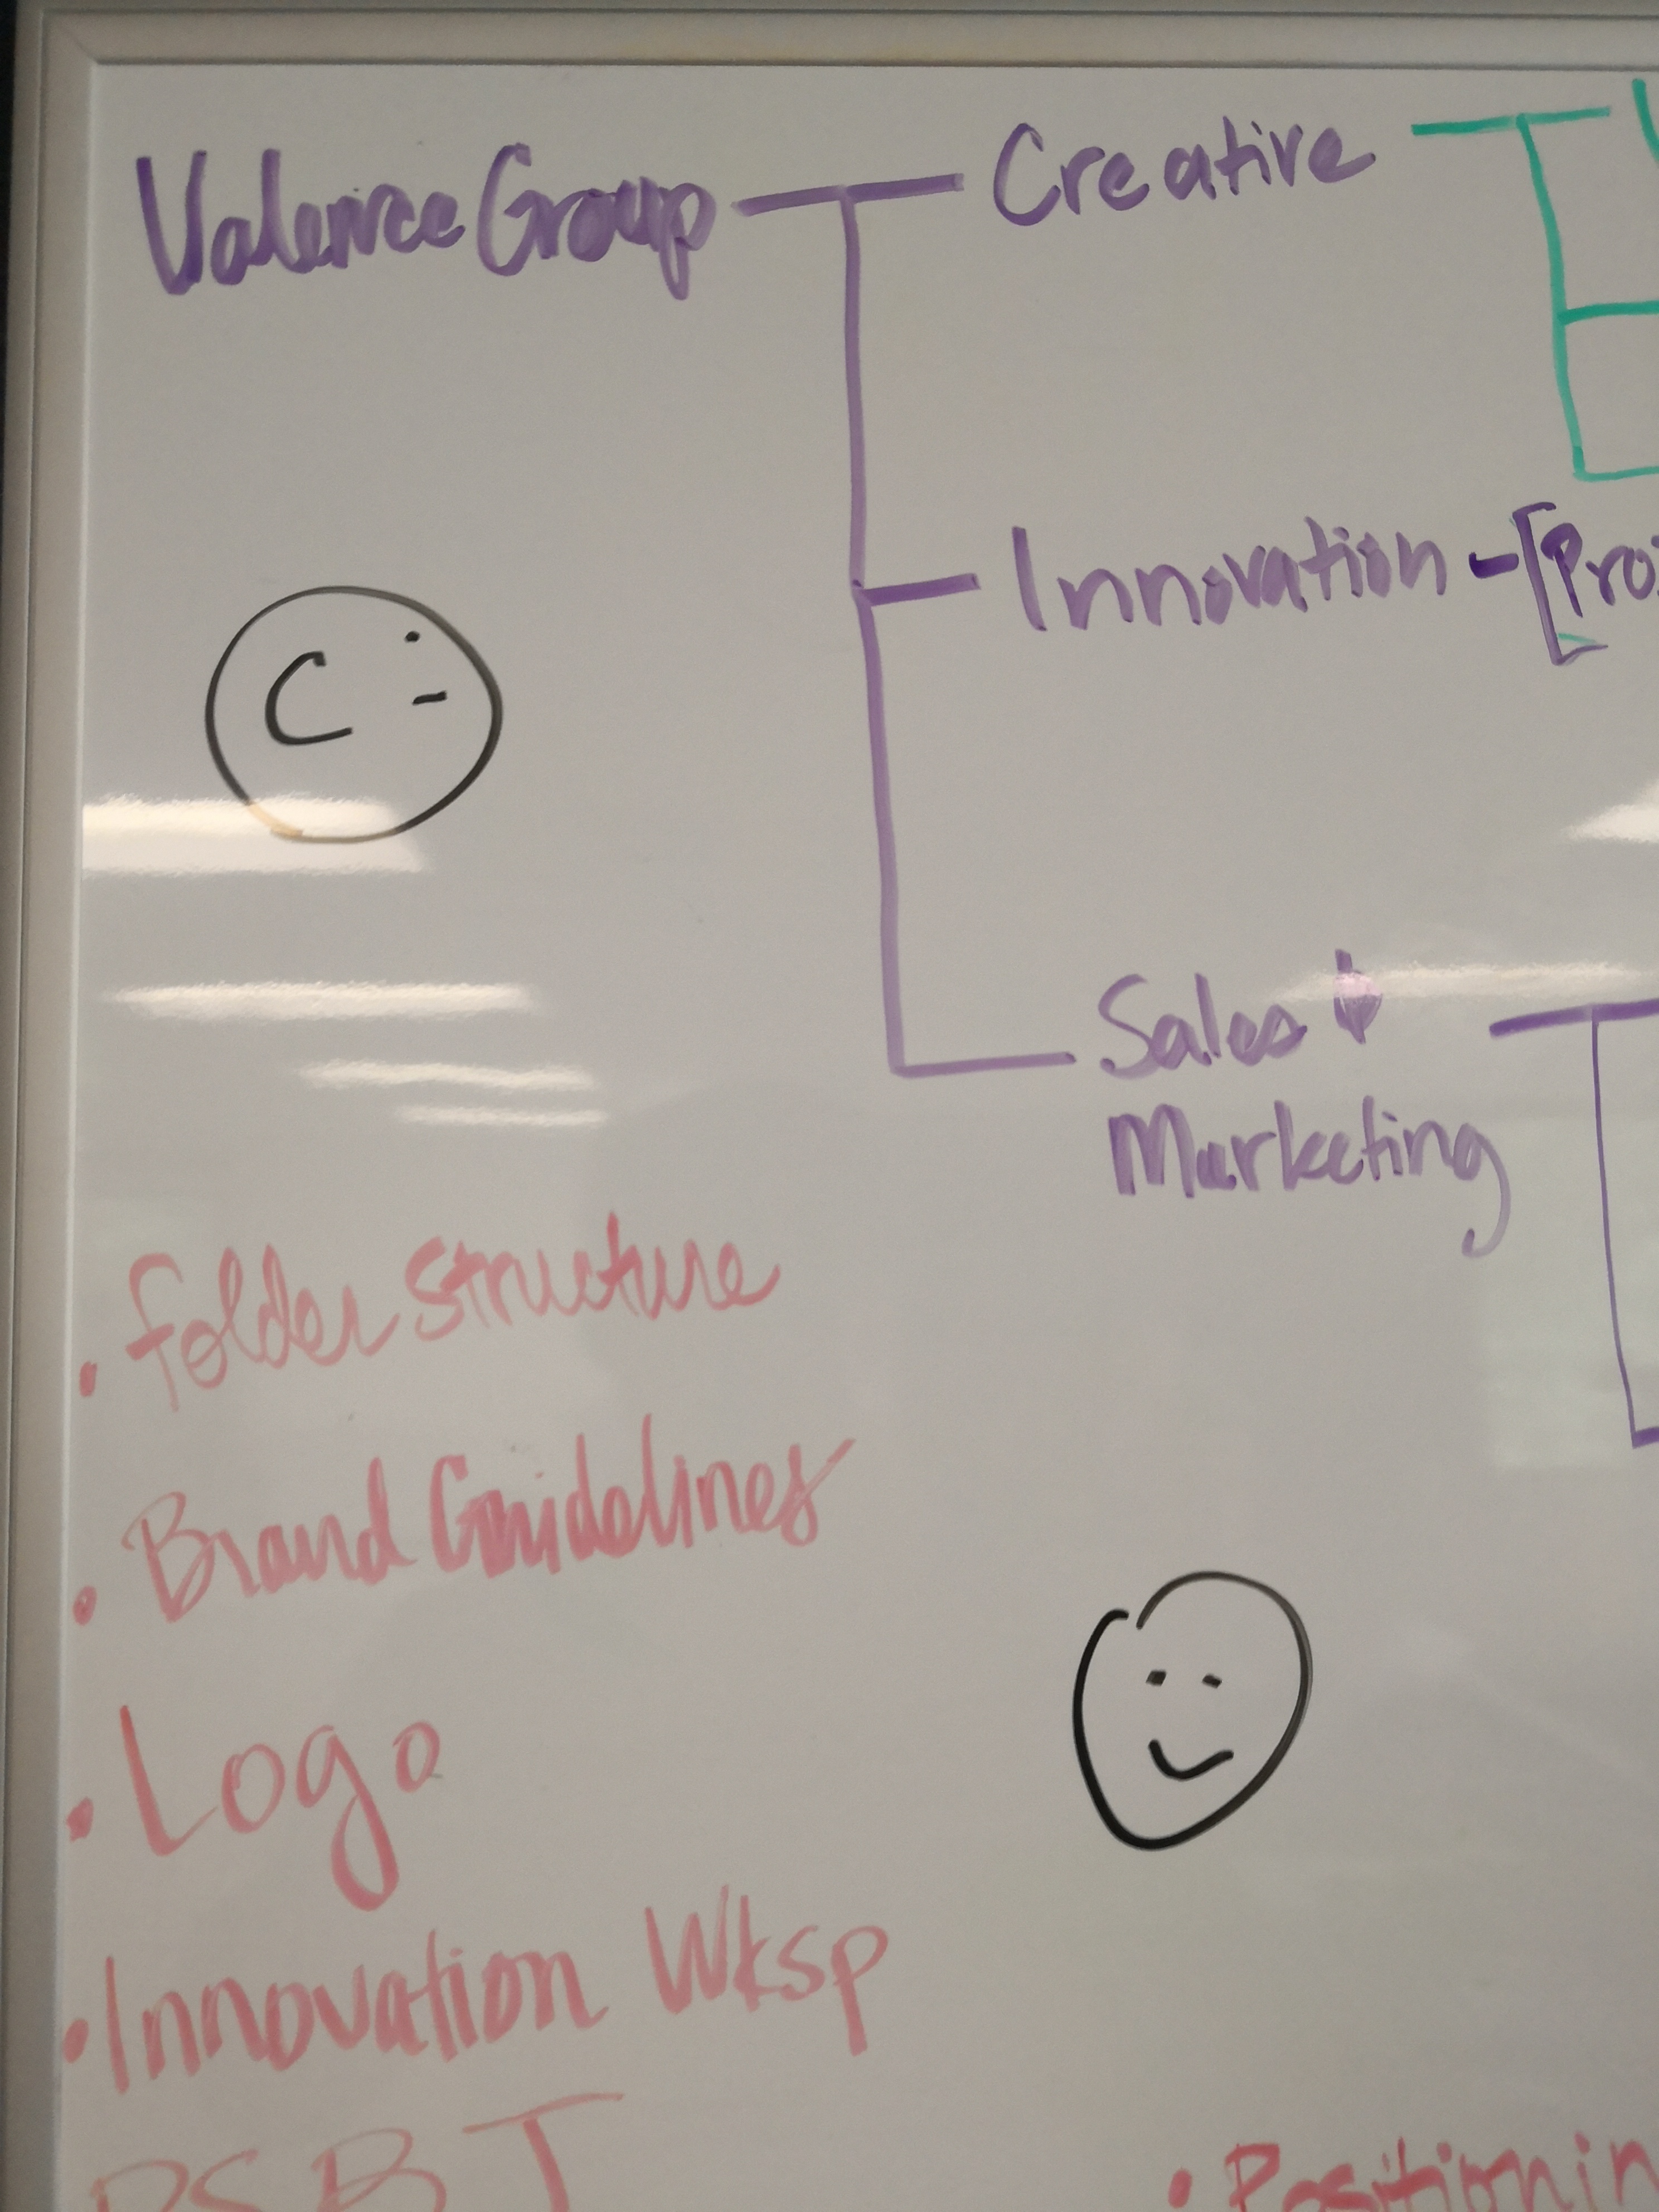 Valence Group
Creative
Innovation - [Pro
Sales &
Marketing
• Folder structure
• Brand Guidelines
• Logo
• Innovation Wksp
• Positionin